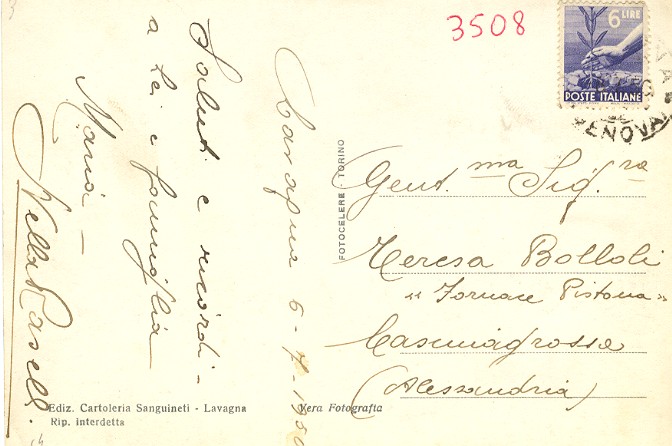 3508
6 LIRE
POSTE ITALIANE
Lavagna 6-7-1950
Saluti e ricordi -
a Lei e famiglia
Maria -
Nella
FOTOCELERE - TORINO
Gent.ma Sig.ra
Teresa Bolloli
"Fornace Pistona"
Casalnagrossa
(Alessandria)
Ediz. Cartoleria Sanguineti - Lavagna
Rip. interdetta
Vera Fotografia